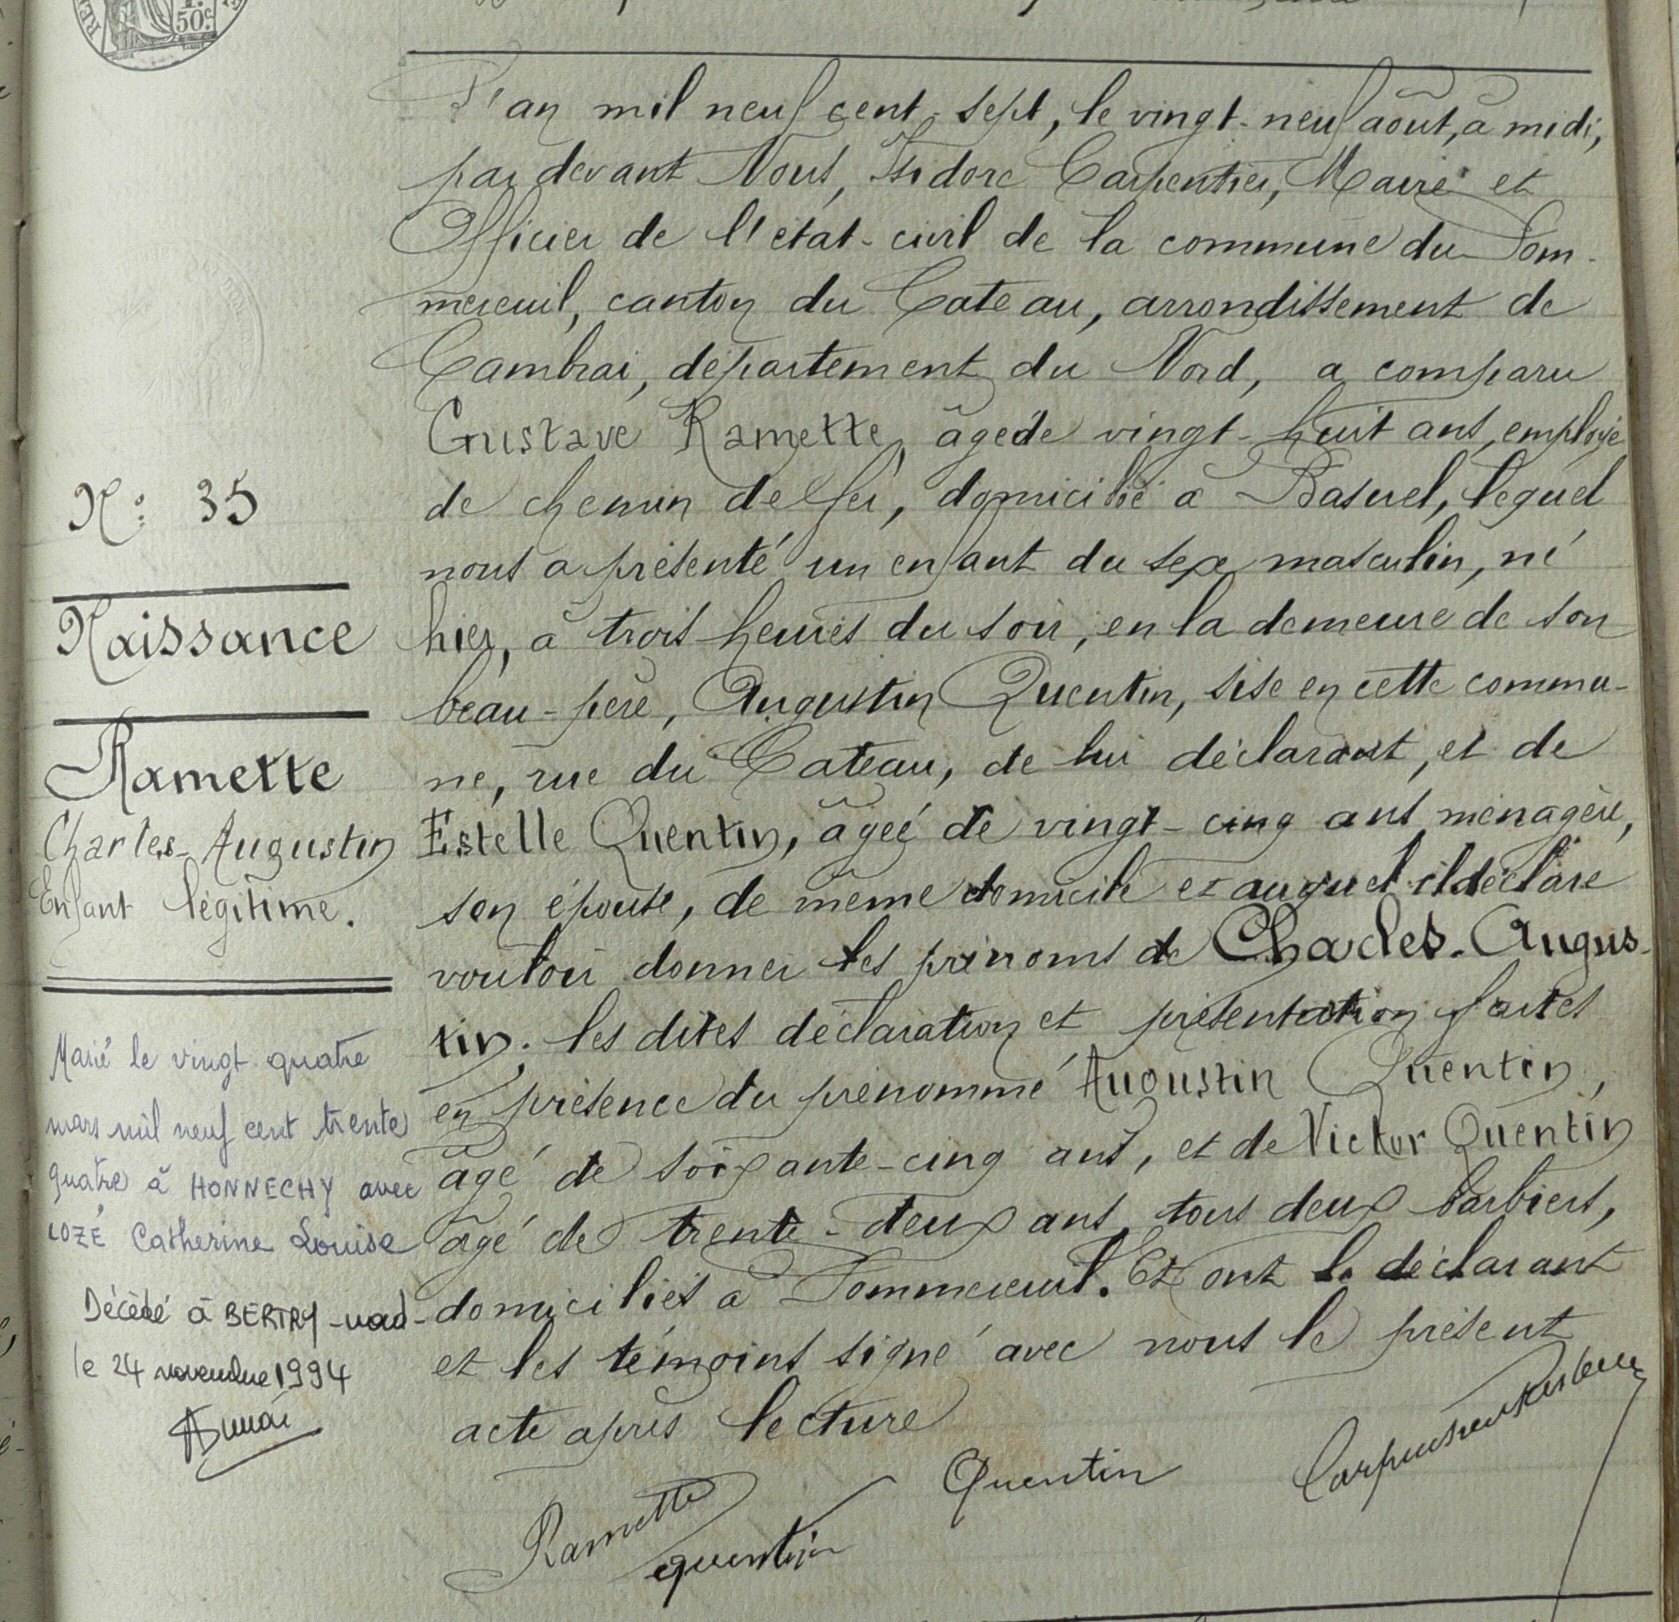 50c
N° 35
Naissance
Ramette
Charles-Augustin
Enfant légitime.
Marié le vingt quatre
mars mil neuf cent trente
quatre à HONNECHY avec
LOZÉ Catherine Louise
Décédé à BERTRY-nord-
le 24 novembre 1994
L'an mil neuf cent sept, le vingt-neuf août, à midi,
par devant Nous, Isidore Carpentier, Maire et
Officier de l'état-civil de la commune du Pom-
mereuil, canton du Cateau, arrondissement de
Cambrai, département du Nord, a comparu
Gustave Ramette, âgé de vingt-huit ans, employé
de chemin de fer, domicilié à Basuel, lequel
nous a présenté un enfant du sexe masculin, né
hier, à trois heures du soir, en la demeure de son
beau-père, Augustin Quentin, sise en cette commu-
ne, rue du Cateau, de lui déclarant, et de
Estelle Quentin, âgée de vingt-cinq ans, ménagère,
son épouse, de même domicile et auquel il déclare
vouloir donner les prénoms de Charles-Augus-
tin. les dites déclaration et présentation faites
en présence du prénommé Augustin Quentin,
âgé de soixante-cinq ans, et de Victor Quentin
âgé de trente-deux ans, tous deux barbiers,
domiciliés à Pommereuil. Et ont le déclarant
et les témoins signé avec nous le présent
acte après lecture
Ramette
quentin
Quentin